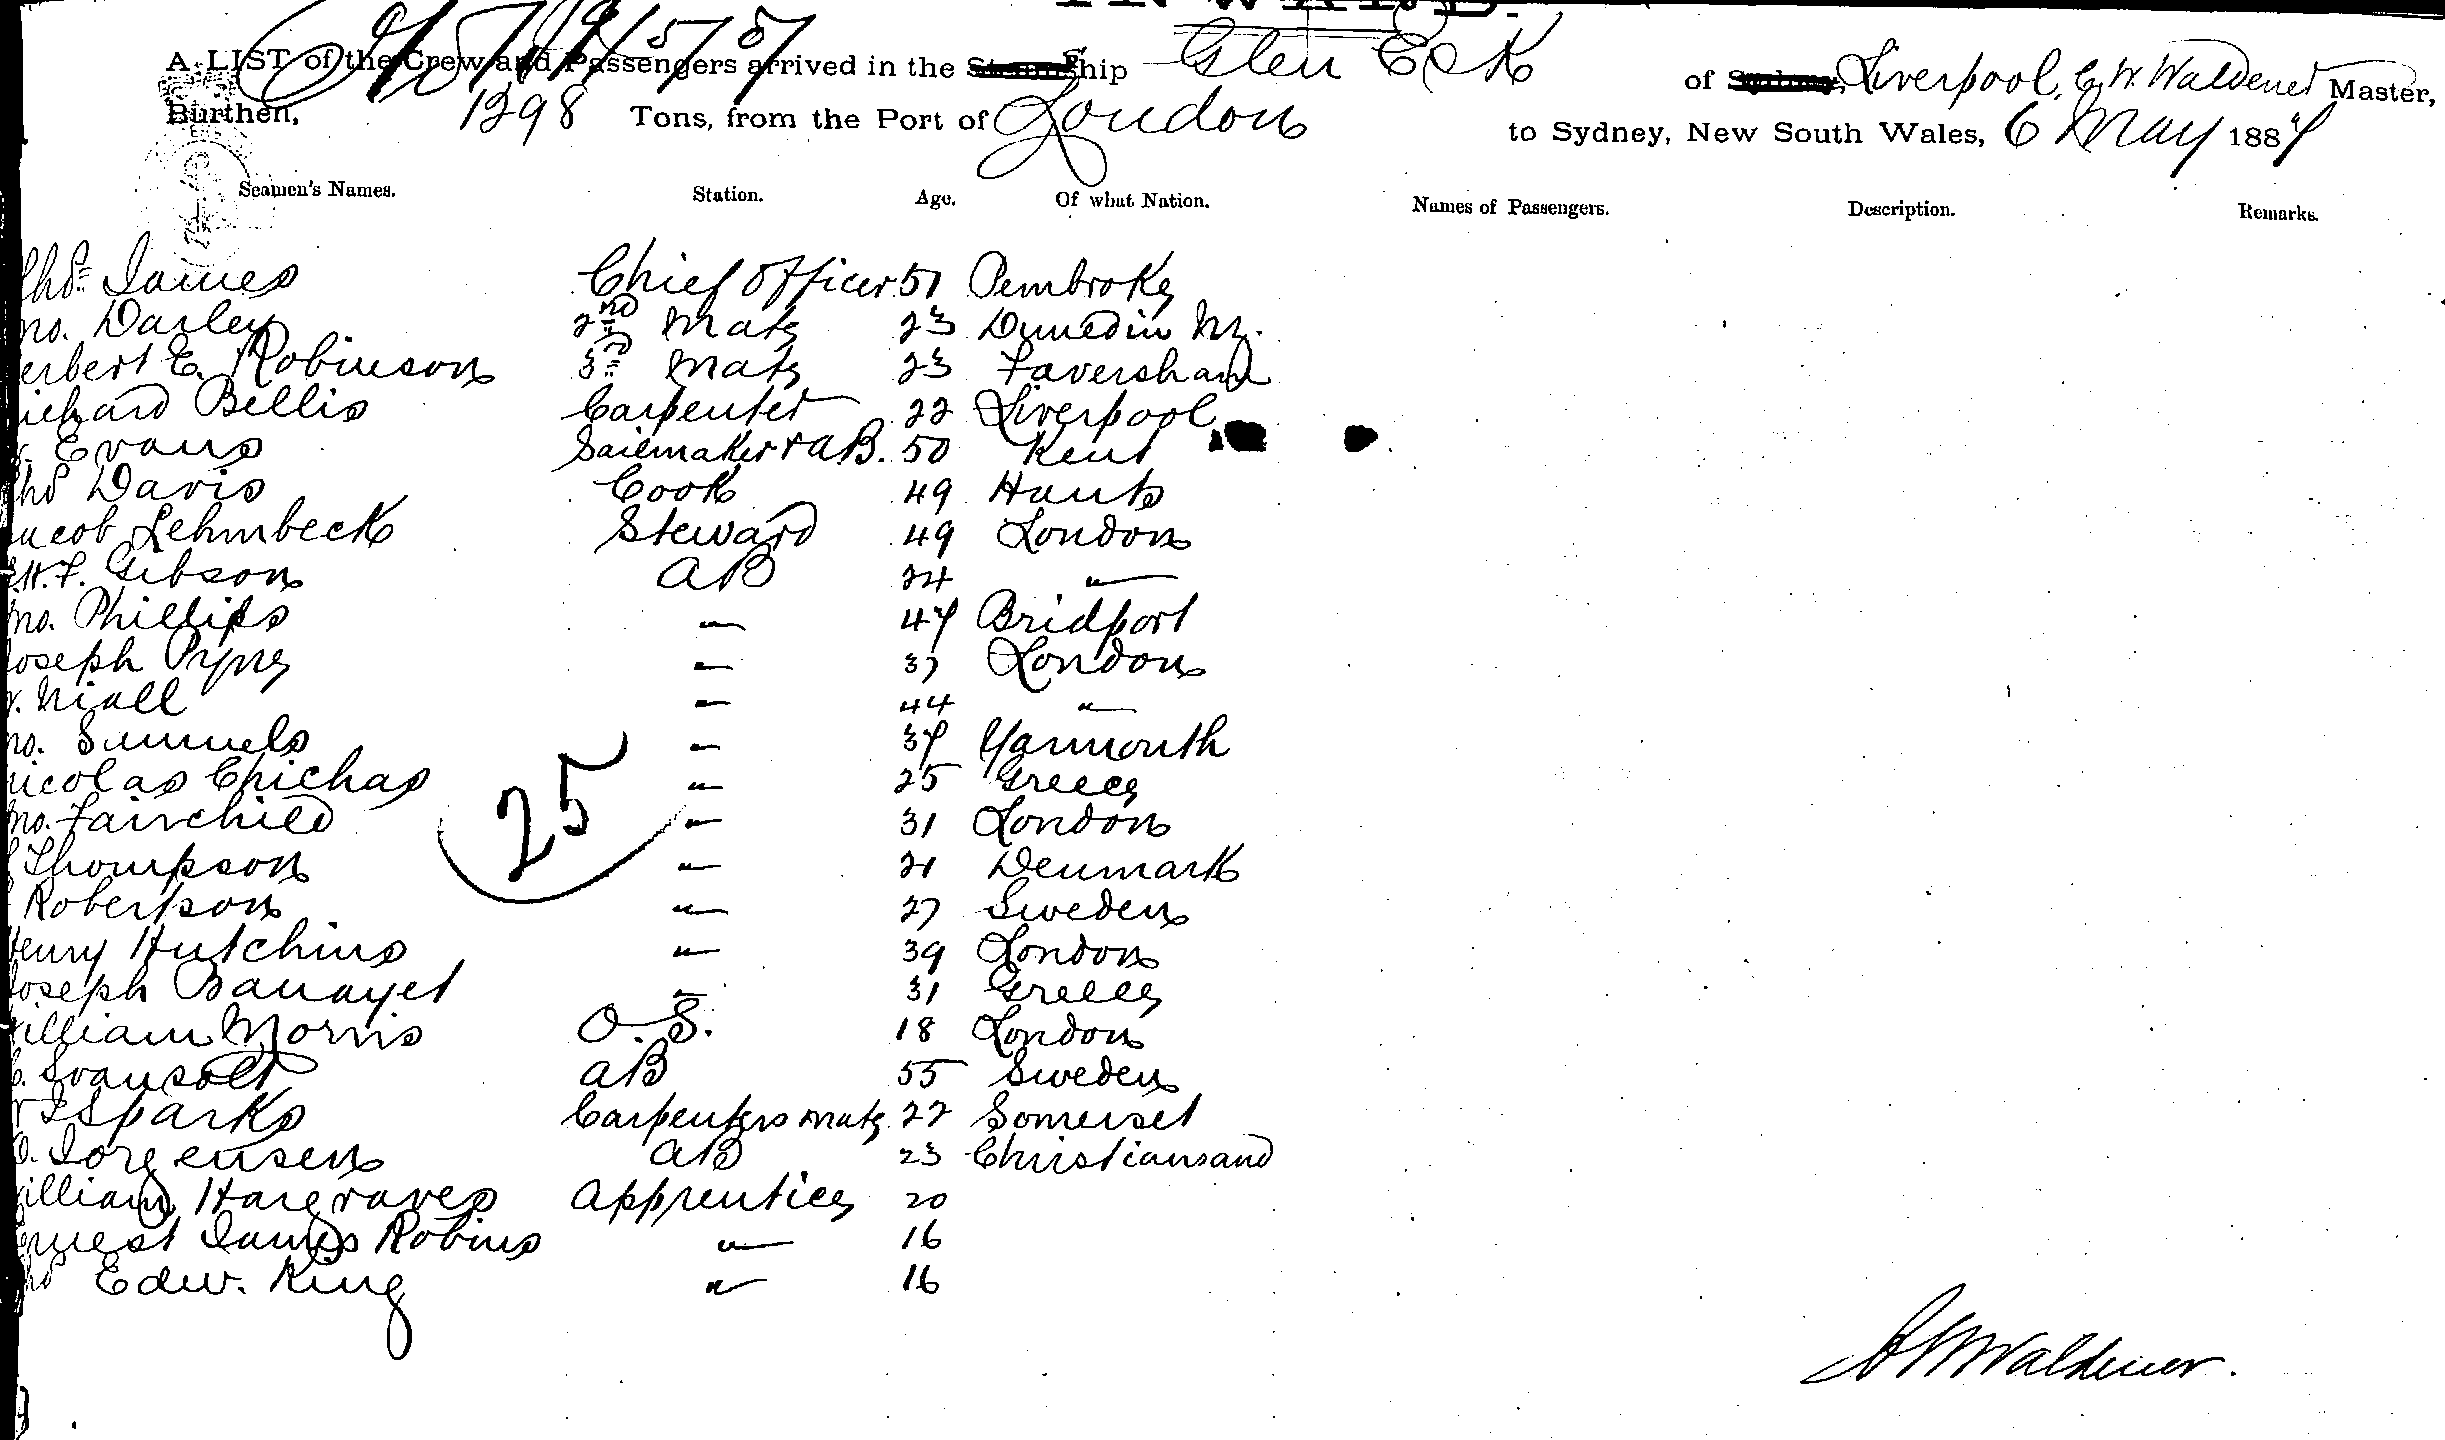 A LIST of the Crew and Passengers arrived in the Ship Glen Esk of Liverpool, C. W. Waldener Master,
Burthen, 1398 Tons, from the Port of London to Sydney, New South Wales, 6 May 1887
Seamen's Names. Station. Age. Of what Nation. Names of Passengers. Description. Remarks.
Thos James Chief Officer 51 Pembroke
no. Darley 2nd Mate 23 Dunedin NZ.
erbert E. Robinson 3rd Mate 23 Faversham
ichard Bellis Carpenter 22 Liverpool
Evans Sailmaker & AB. 50 Kent
hos Davis Cook 49 Hants
acob Lehmbeck Steward 49 London
H. F. Gibson AB 24 "
no. Phillips " 47 Bridport
Joseph Pyne " 37 London
Niall " 44 "
no. Samuels " 37 Yarmouth
nicolas Chichas " 25 Greece
no. Fairchild " 31 London
Thompson " 21 Denmark
Robertson " 27 Sweden
Henry Hutchins " 39 London
Joseph Banayet " 31 Greece
illiam Morris O.S. 18 London
Svansolt AB 55 Sweden
Sparks Carpenters Mate 22 Somerset
O. Jorgensen AB 23 Christiansand
illiam Hargraves Apprentice 20
rnest James Robins " 16
hos Edw. King " 16
25
Waldener.